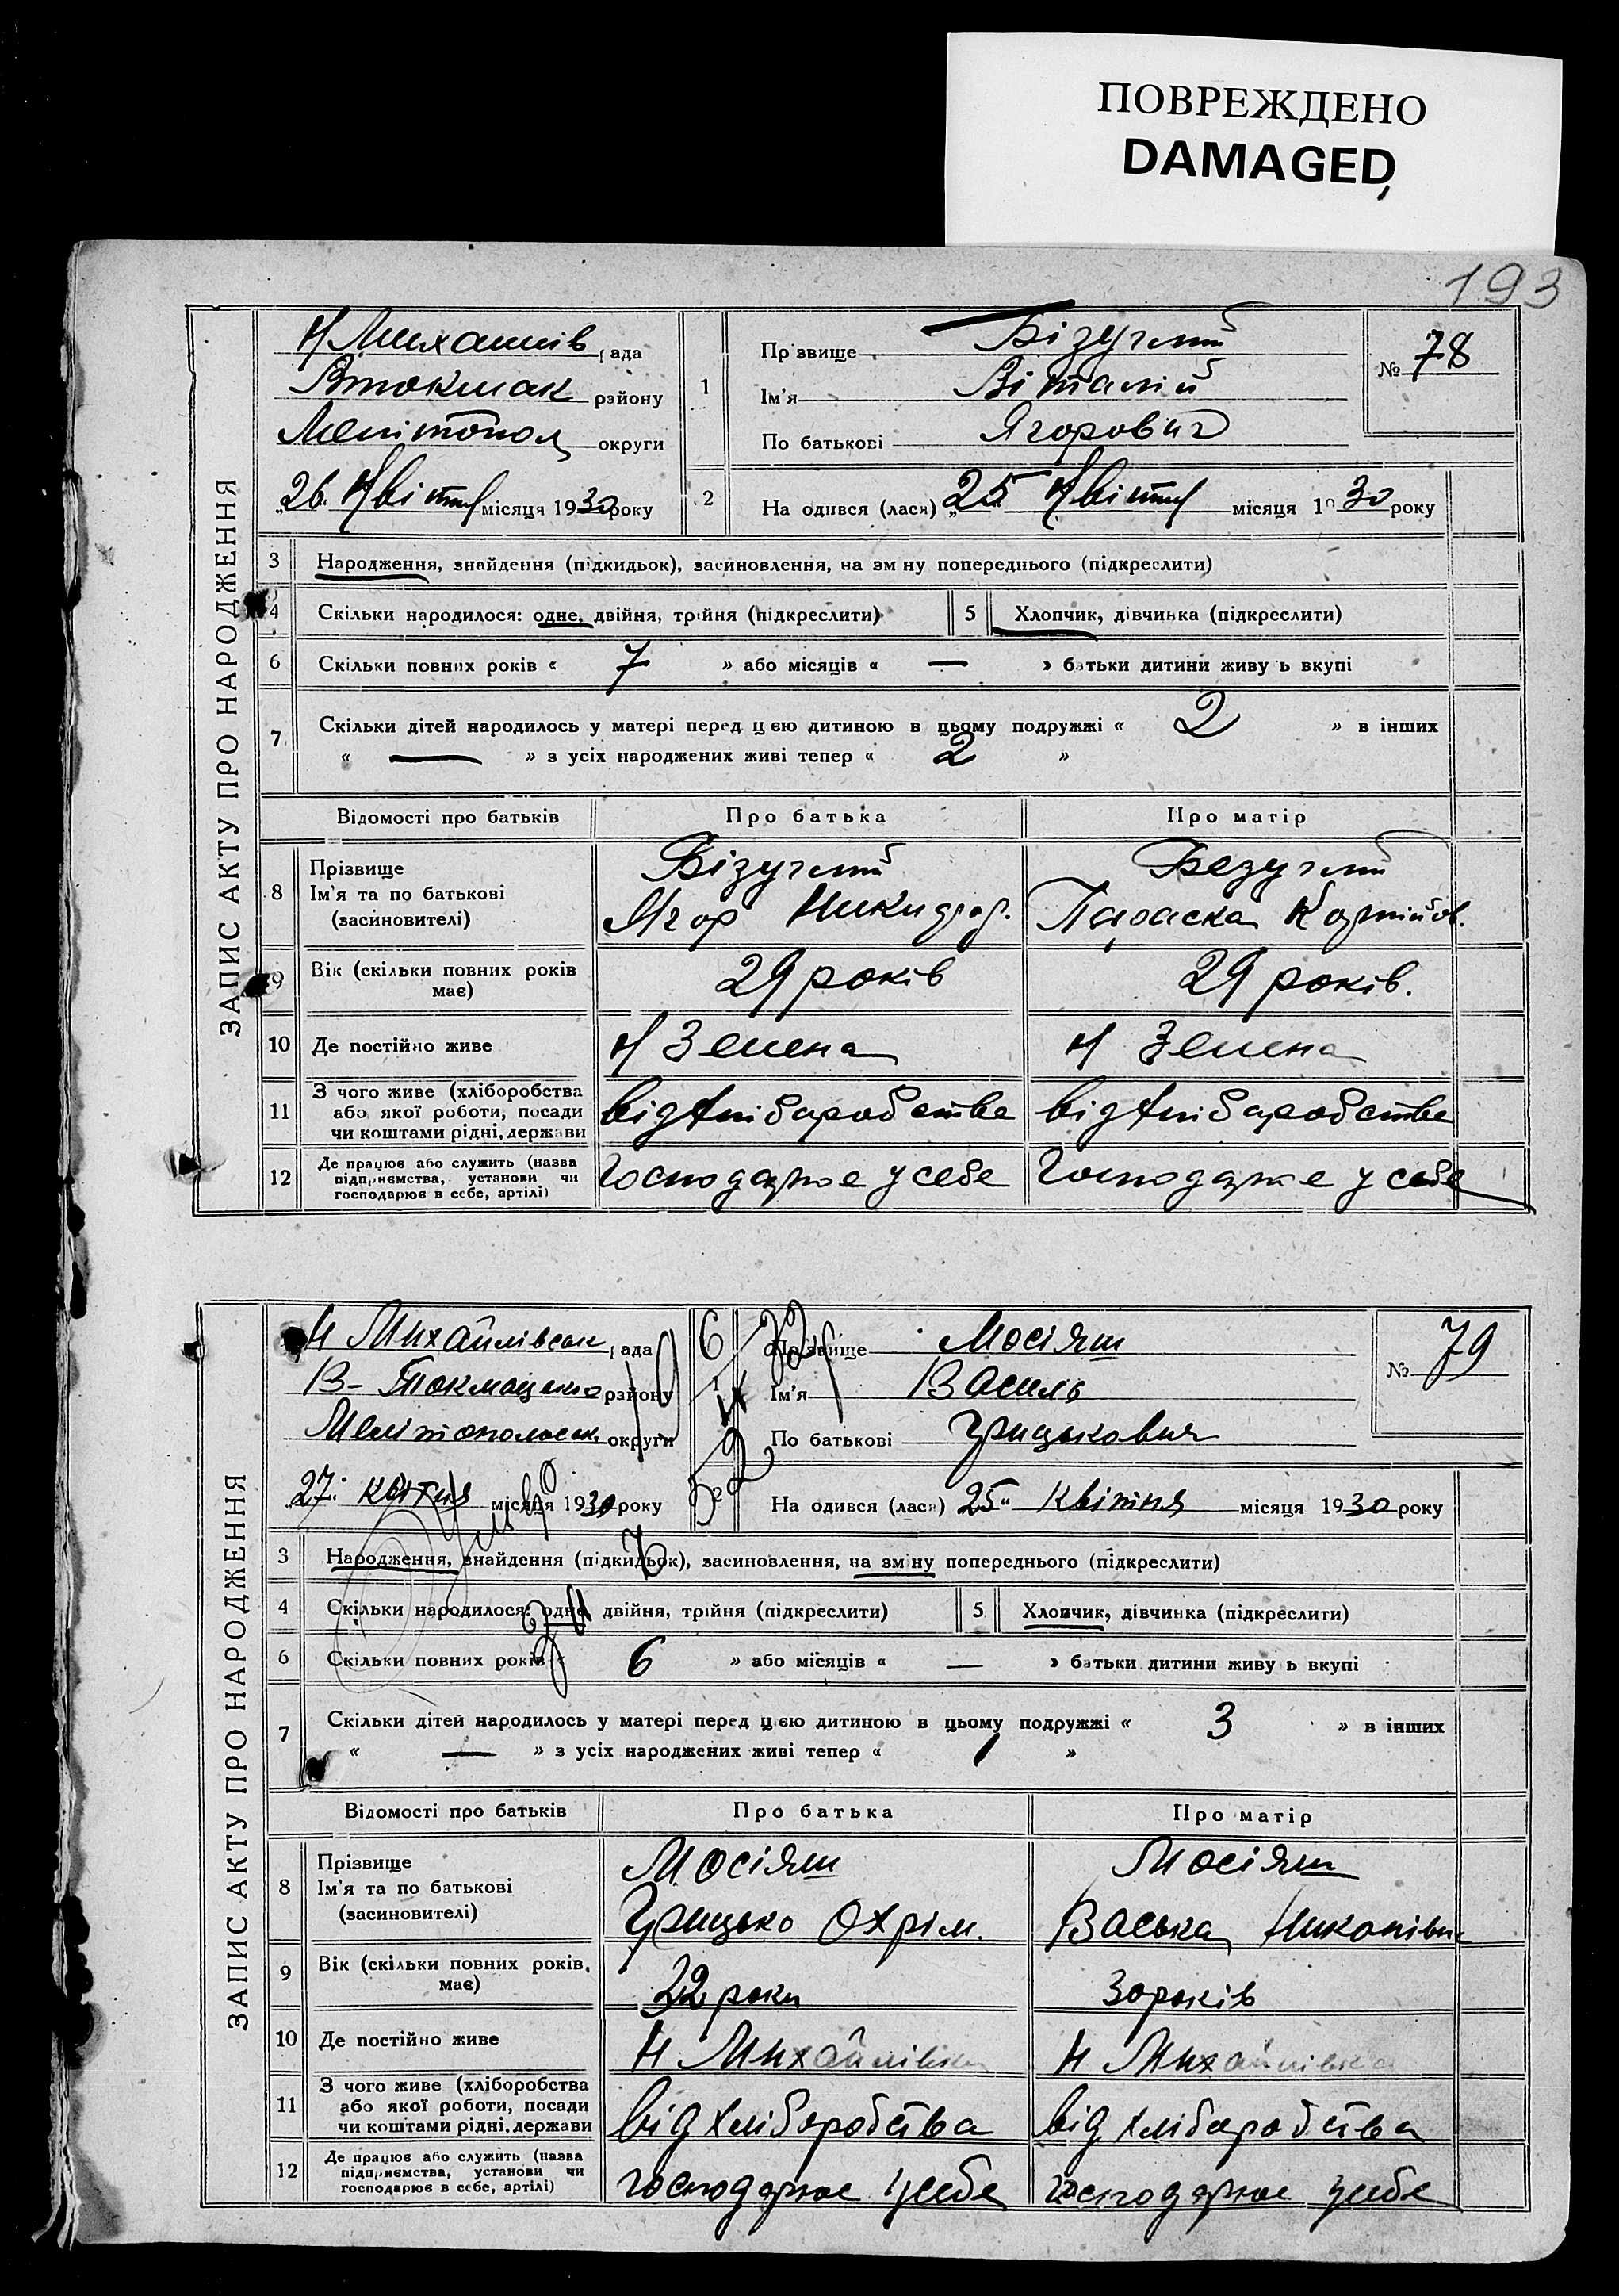 ПОВРЕЖДЕНО
DAMAGED
193
ЗАПИС АКТУ ПРО НАРОДЖЕННЯ
Н Михайлів рада
Втокмак району
Мелітопол округи
„26. Квітня місяця 1930 року
1 Прізвище Бізуглий
Ім'я Віталій
По батькові Ягорович
№ 78
2 Народився (лася) „25“ Квітня місяця 1930 року
3 Народження, знайдення (підкидьок), засиновлення, на зміну попереднього (підкреслити)
4 Скільки народилося: одне, двійня, трійня (підкреслити) 5 Хлопчик, дівчинка (підкреслити)
6 Скільки повних років « 7 » або місяців « — » батьки дитини живуть вкупі
7 Скільки дітей народилось у матері перед цією дитиною в цьому подружжі « 2 » в інших
« — » з усіх народжених живі тепер « 2 »
Відомості про батьків Про батька Про матір
8 Прізвище
Ім'я та по батькові
(засиновителі)
Бізуглий
Ягор Никидор.
Безуглий
Параска Корнійов.
9 Вік (скільки повних років
має)
29 років 29 років.
10 Де постійно живе Н Зелена Н Зелена
11 З чого живе (хліборобства
або якої роботи, посади
чи коштами рідні, держави
від хліборобства від хліборобства
12 Де працює або служить (назва
підприємства, установи чи
господарює в себе, артілі)
Господарює у себе Господарює у себе
ЗАПИС АКТУ ПРО НАРОДЖЕННЯ
Н Михайлівськ рада
В-Токмацького району
Мелітопольськ. округи
„27“ квітня місяця 1930 року
1 Прізвище Мосіяш
Ім'я Василь
По батькові Грицькович
№ 79
2 Народився (лася) „25“ Квітня місяця 1930 року
3 Народження, знайдення (підкидьок), засиновлення, на зміну попереднього (підкреслити)
4 Скільки народилося: одне, двійня, трійня (підкреслити) 5 Хлопчик, дівчинка (підкреслити)
6 Скільки повних років « 6 » або місяців « — » батьки дитини живуть вкупі
7 Скільки дітей народилось у матері перед цією дитиною в цьому подружжі « 3 » в інших
« — » з усіх народжених живі тепер « 1 »
Відомості про батьків Про батька Про матір
8 Прізвище
Ім'я та по батькові
(засиновителі)
Мосіяш
Грицько Охрім.
Мосіяш
Васька
9 Вік (скільки повних років,
має)
32 роки 30 років
10 Де постійно живе Н Михайлівка Н Михайлівка
11 З чого живе (хліборобства
або якої роботи, посади
чи коштами рідні, держави
від хліборобства від хліборобства
12 Де працює або служить (назва
підприємства, установи чи
господарює в себе, артілі)
господарює у себе господарює у себе